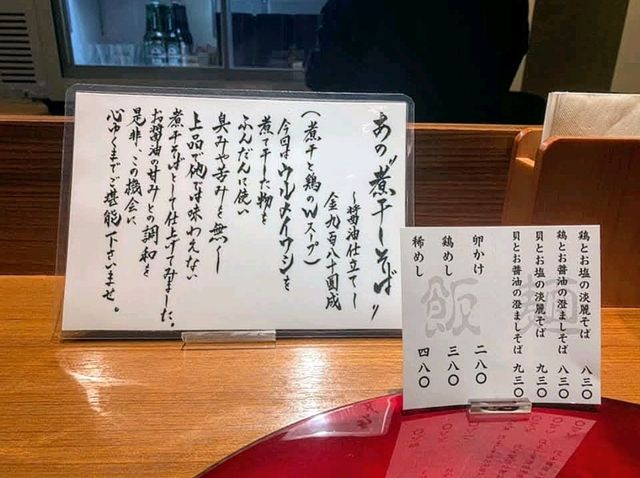 あの“煮干しそば”
～醤油仕立て～
金九百八十圓成
（煮干と鶏のWスープ）
今回はウルメイワシを
煮て干した物を
ふんだんに使い
臭みや苦みを無くし
上品で他では味わえない
煮干そばとして仕上げてみました。
お醤油の甘みとの調和を
是非、この機会に
心ゆくまでご堪能下さいませ。
麺
鶏とお塩の淡麗そば 八三〇
鶏とお醤油の澄ましそば 八三〇
貝とお塩の淡麗そば 九三〇
貝とお醤油の澄ましそば 九三〇
飯
卵かけ 二八〇
鶏めし 三八〇
稀めし 四八〇